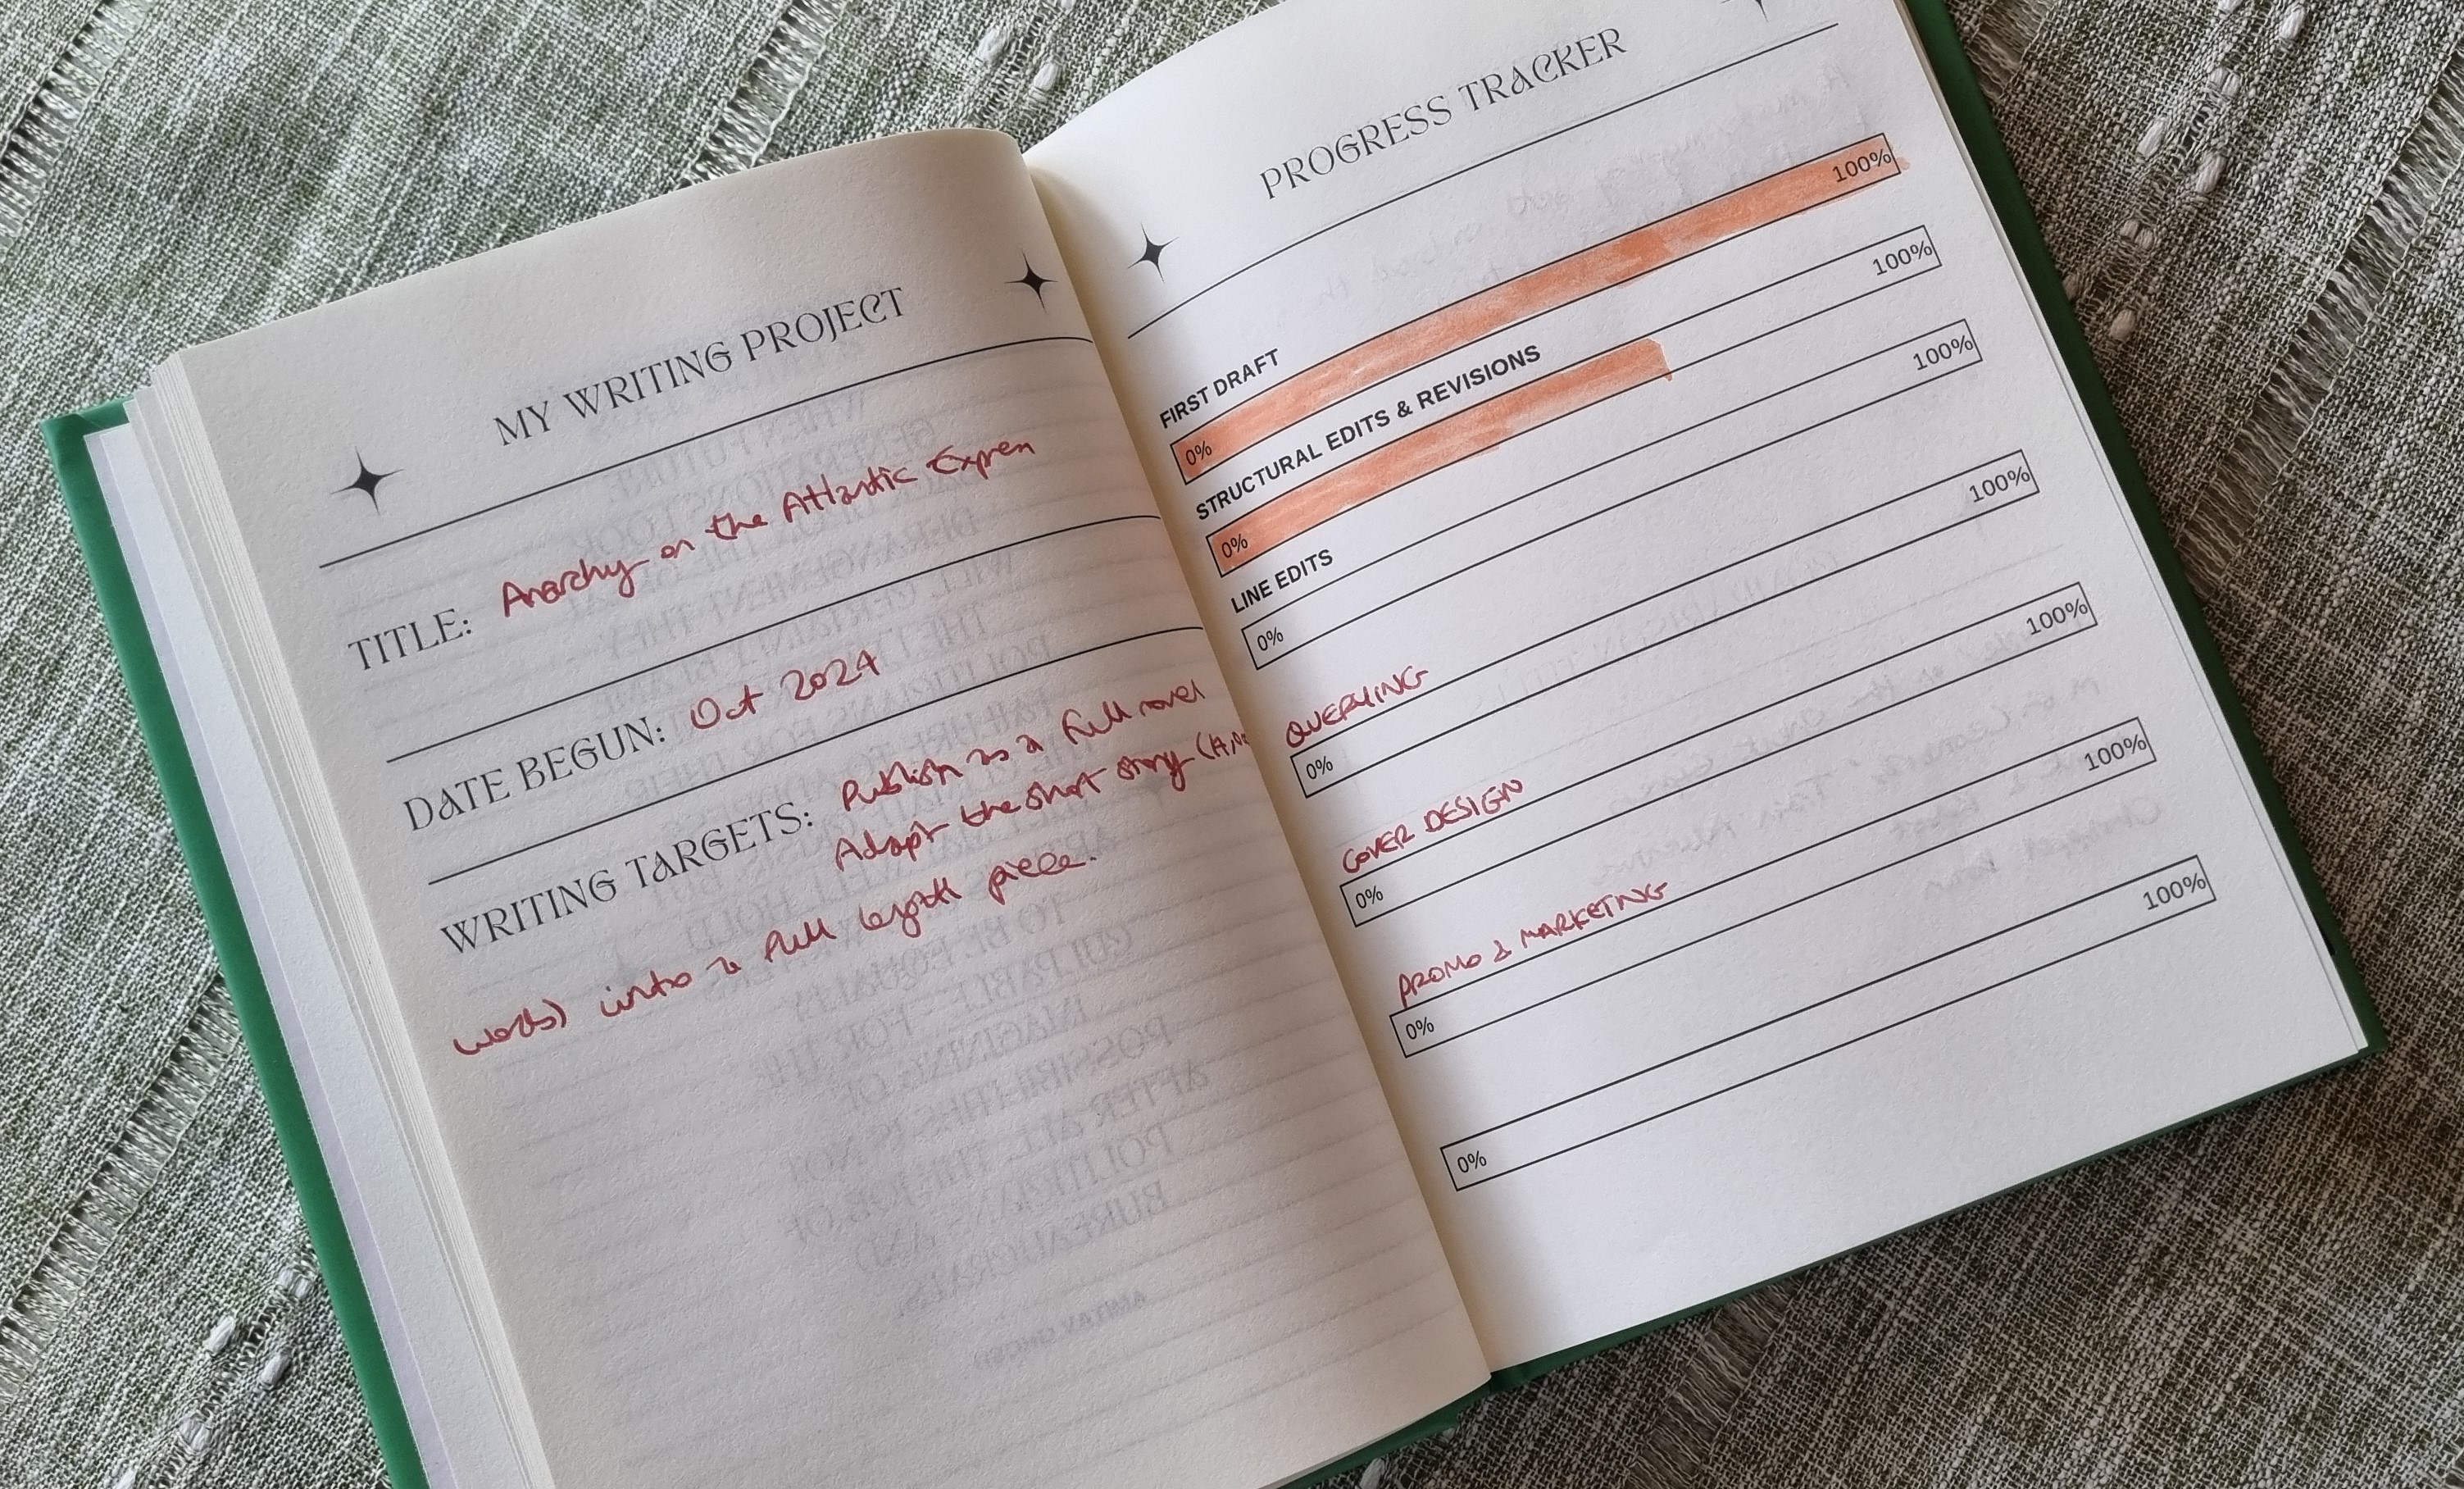 MY WRITING PROJECT
TITLE: Anarchy on the Atlantic Expren
DATE BEGUN: Oct 2024
WRITING TARGETS: Publish as a full novel
Adapt the short story
words) into a full length piece.
PROGRESS TRACKER
FIRST DRAFT
0% 100%
STRUCTURAL EDITS & REVISIONS
0% 100%
LINE EDITS
0% 100%
QUERYING
0% 100%
COVER DESIGN
0% 100%
PROMO & MARKETING
0% 100%
0% 100%